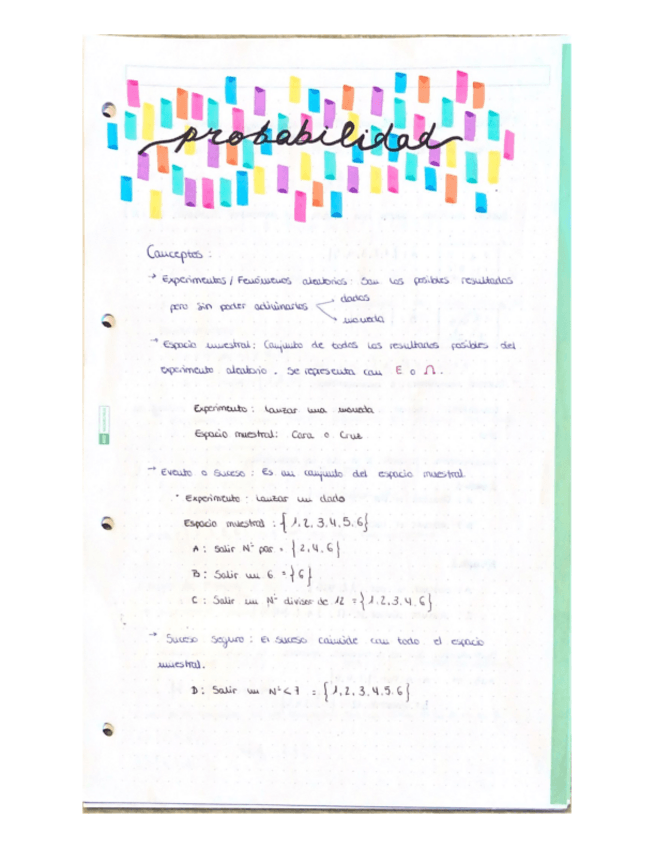 probabilidad
Conceptos :
→ Experimentos / Fenómenos aleatorios : Son los posibles resultados
pero sin poder adivinarlos
dados
moneda
→ Espacio muestral : Conjunto de todos los resultados posibles del
experimento aleatorio . Se representa con E o Ω .
Experimento : Lanzar una moneda
Espacio muestral : Cara o Cruz
→ Evento o Suceso : Es un conjunto del espacio muestral
· Experimento : Lanzar un dado
Espacio muestral : {1,2,3,4,5,6}
A : Salir Nº par = {2,4,6}
B : Salir un 6 = {6}
C : Salir un Nº divisor de 12 = {1,2,3,4,6}
→ Suceso Seguro : El suceso coincide con todo el espacio
muestral.
D : Salir un Nº < 7 = {1,2,3,4,5,6}